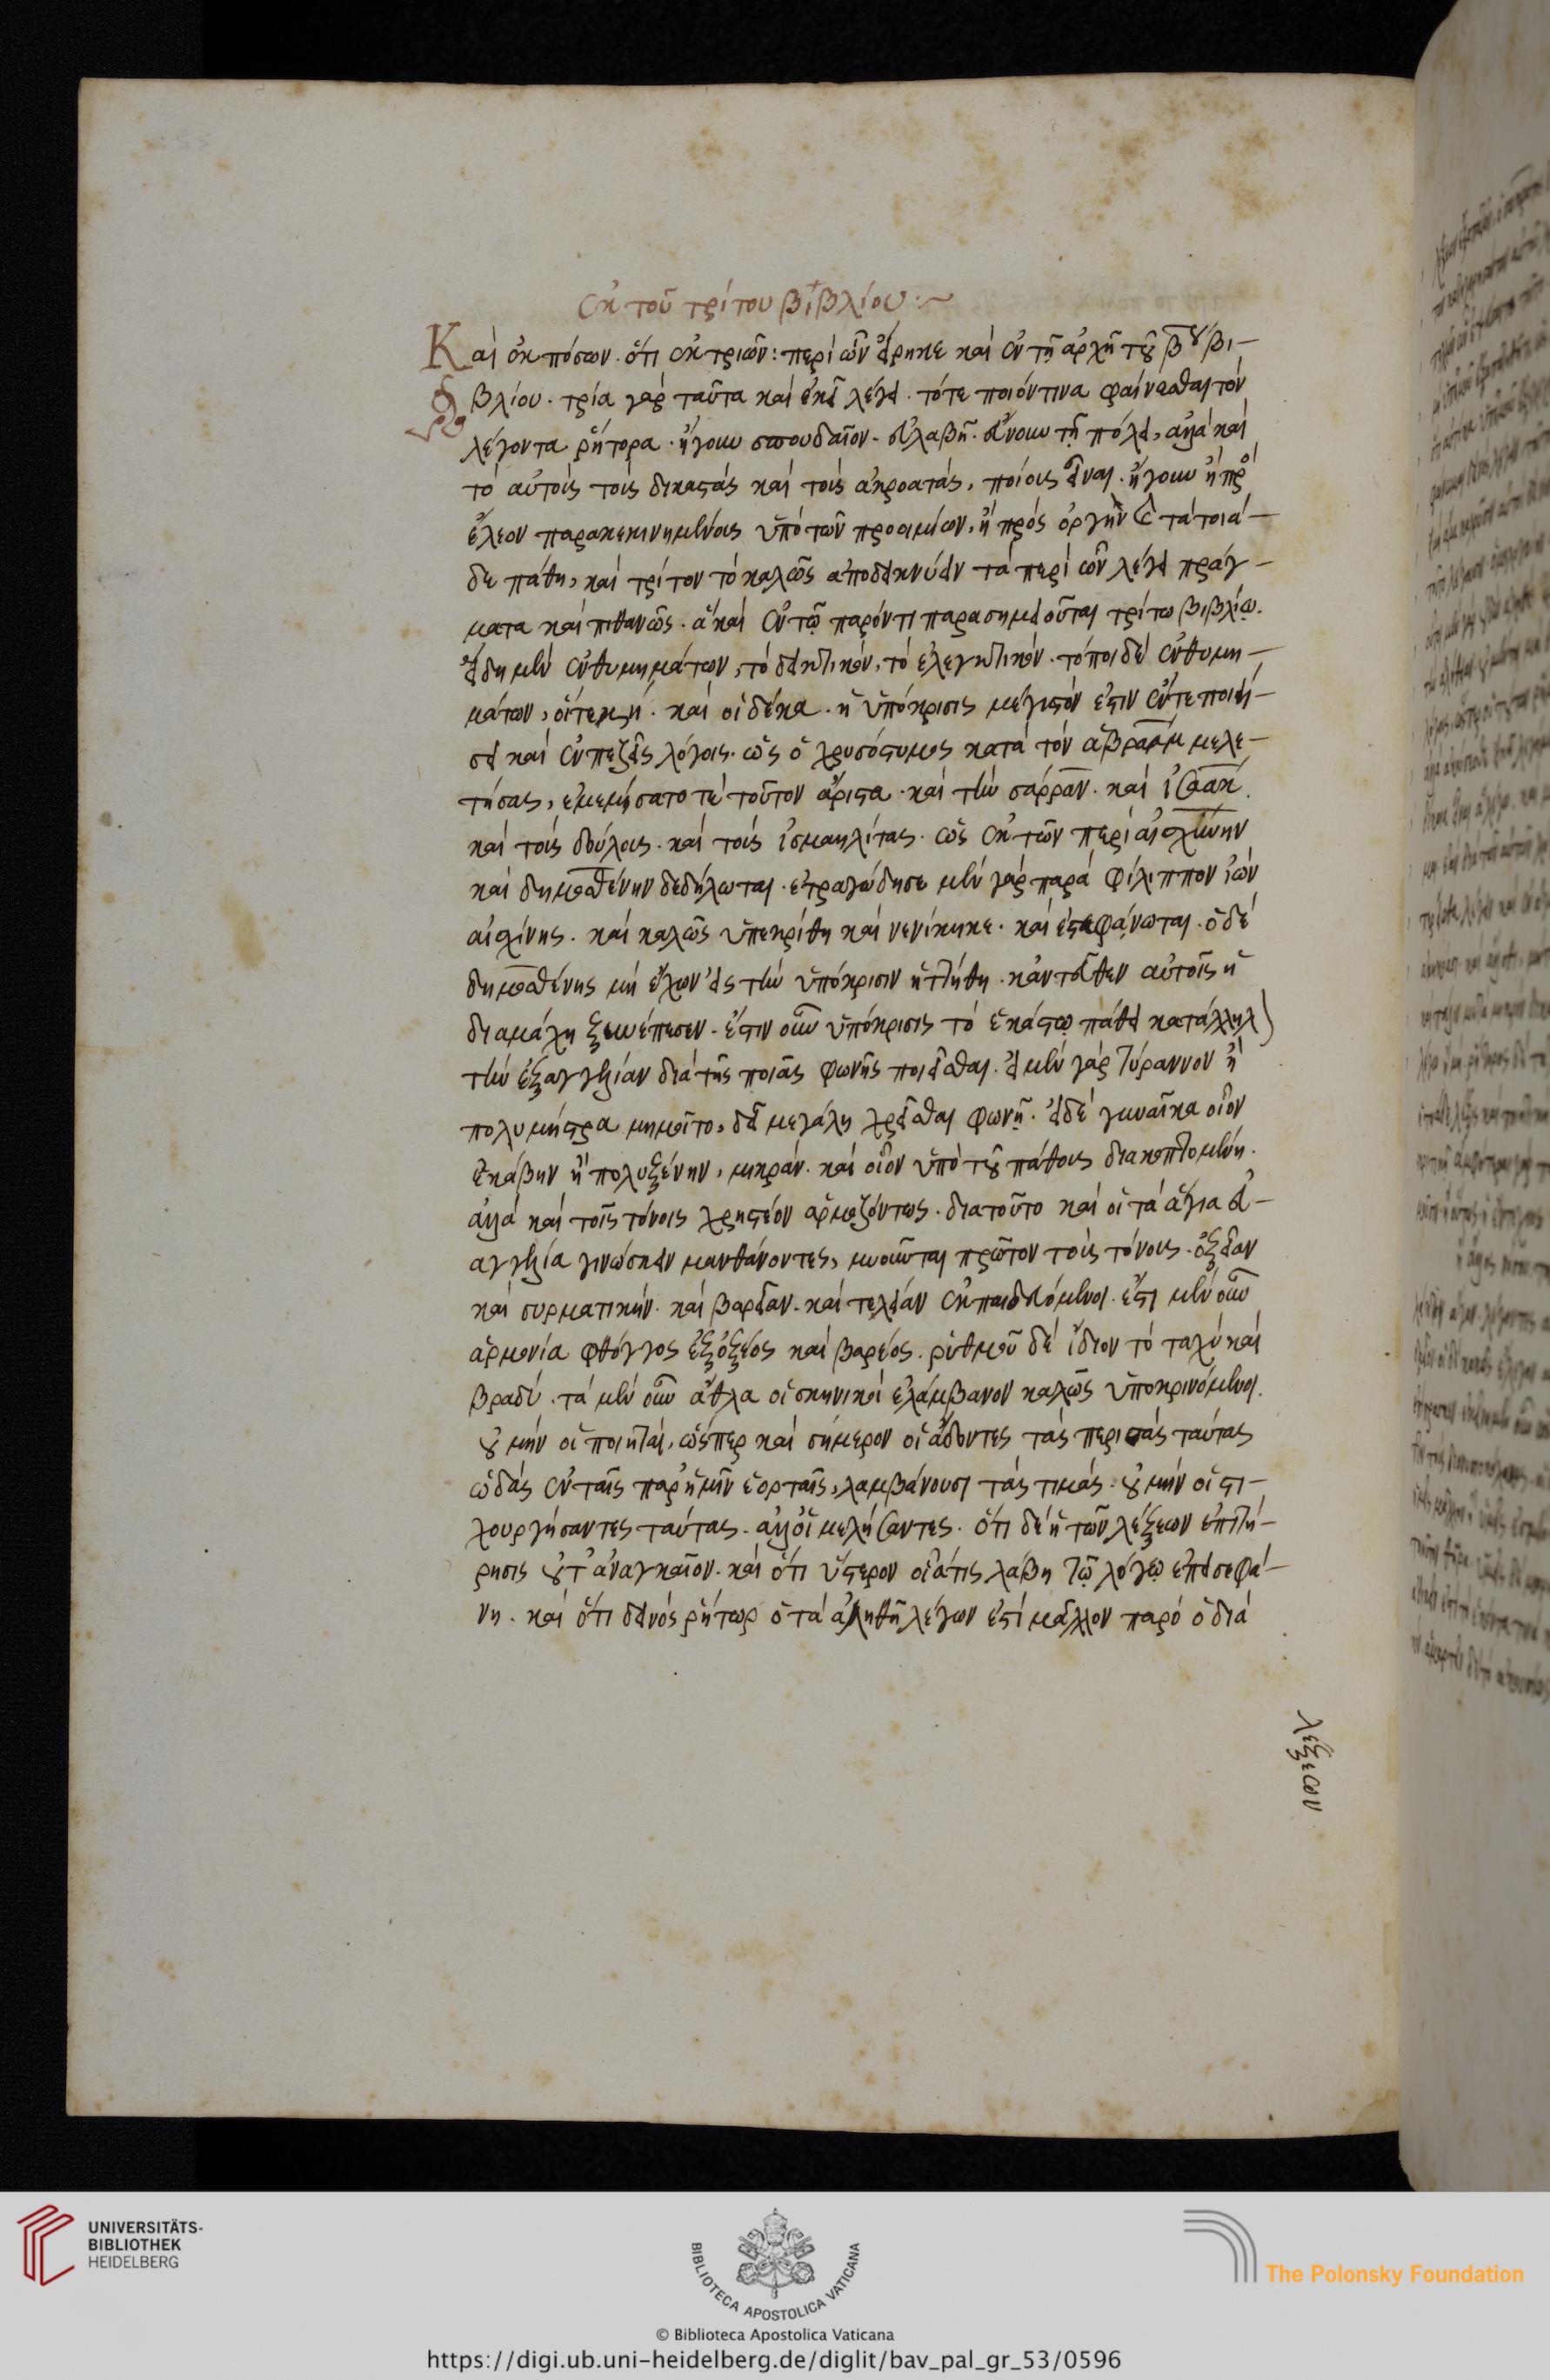 ἐκ τοῦ τρίτου βιβλίου
Καὶ ἐκ πόσων· ὅτι ἐκ τριῶν: περὶ ὧν εἴρηκε καὶ ἐν τῇ ἀρχῇ τοῦ βου βι-
βλίου· τρία γὰρ ταῦτα καὶ ἐκεῖ λέγει· τό τε ποιόν τινα φαίνεσθαι τὸν
λέγοντα ῥήτορα· ἤγουν σπουδαῖον· εὐλαβῆ· εὔνουν τῇ πόλει, ἀλλὰ καὶ
τὸ αὐτοὺς τοὺς δικαστὰς καὶ τοὺς ἀκροατὰς, ποίους εἶναι· ἤγουν ἢ πρὸς
ἔλεον παρακεκινημένους ὑπὸ τῶν προοιμίων, ἢ πρὸς ὀργὴν καὶ τὰ τοιά-
δε πάθη, καὶ τρίτον τὸ καλῶς ἀποδεικνύειν τὰ περὶ ὧν λέγει πράγ-
ματα καὶ πιθανῶς· ἃ καὶ ἐν τῷ παρόντι παρασημειοῦται τρίτω βιβλίῳ.
εἴδη μὲν ἐνθυμημάτων, τὸ δεικτικὸν, τὸ ἐλεγκτικόν· τόποι δὲ ἐνθυμη-
μάτων, οἵ τε κη· καὶ οἱ δέκα· ἡ ὑπόκρισις μέγιστόν ἐστιν ἔν τε ποιή-
σει καὶ ἐν πεζοῖς λόγοις· ὡς ὁ χρυσόστομος κατὰ τὸν ἀβραὰμ μελε-
τήσας, ἐμιμήσατό τε τοῦτον ἄριστα· καὶ τὴν σάρραν· καὶ ἰσαάκ.
καὶ τοὺς δούλους· καὶ τοὺς ἰσμαηλίτας· ὡς ἐκ τῶν περὶ αἰσχίνην
καὶ δημοσθένην δεδήλωται· ἐτραγώδησε μὲν γὰρ παρὰ φίλιππον ἰὼν
αἰσχίνης· καὶ καλῶς ὑπεκρίθη καὶ νενίκηκε· καὶ ἐστεφάνωται· ὁ δὲ
δημοσθένης μὴ ἔχων εἰς τὴν ὑπόκρισιν ἡττήθη· κἀντεῦθεν αὐτοῖς ἡ
διαμάχη ξυνέπεσεν· ἔστιν οὖν ὑπόκρισις τὸ ἑκάστῳ πάθει κατάλληλ)
τὴν ἐξαγγελίαν διὰ τῆς ποιᾶς φωνῆς ποιεῖσθαι· εἰ μὲν γὰρ τύραννον ἢ
πολυμήστρα μιμοῖτο, δεῖ μεγάλη χρεῖσθαι φωνῇ· εἰ δὲ γυναῖκα οἷον
ἑκάβην ἢ πολυξένην, μικράν· καὶ οἷον ὑπὸ τοῦ πάθους διακοπτομένη.
ἀλλὰ καὶ τοῖς τόνοις χρηστέον ἁρμοζόντως· διατοῦτο καὶ οἱ τὰ ἅγια εὐ-
αγγέλια γινώσκειν μανθάνοντες, μυοῦνται πρῶτον τοὺς τόνους· ὀξεῖαν
καὶ συρματικήν· καὶ βαρεῖαν· καὶ τελείαν ἐκπαιδευόμενοι· ἔστι μὲν οὖν
ἁρμονία φθόγγος ἐξ ὀξέος καὶ βαρέος· ῥυθμοῦ δὲ ἴδιον τὸ ταχὺ καὶ
βραδύ· τὰ μὲν οὖν ἄθλα οἱ σκηνικοὶ ἐλάμβανον καλῶς ὑποκρινόμενοι.
οὐ μὴν οἱ ποιηταί, ὥσπερ καὶ σήμερον οἱ ἄδοντες τὰς περισσὰς ταύτας
ὠδὰς ἐν ταῖς παρ' ἡμῖν ἑορταῖς, λαμβάνουσι τὰς τιμάς· οὐ μὴν οἱ στι-
χουργήσαντες ταύτας· ἀλλ' οἱ μελήσαντες· ὅτι δὲ ἡ τῶν λέξεων ἐπιτή-
ρησις οὔτ' ἀναγκαῖον· καὶ ὅτι ὕστερον λάβη τῷ λόγῳ
νη· καὶ ὅτι δεινὸς ῥήτωρ ὁ τὰ ἀληθῆ λέγων ἐστὶ μᾶλλον παρὸ ὁ διὰ
λέξεων
UNIVERSITÄTS-
BIBLIOTHEK
HEIDELBERG
BIBLIOTECA APOSTOLICA VATICANA
The Polonsky Foundation
© Biblioteca Apostolica Vaticana
https://digi.ub.uni-heidelberg.de/diglit/bav_pal_gr_53/0596